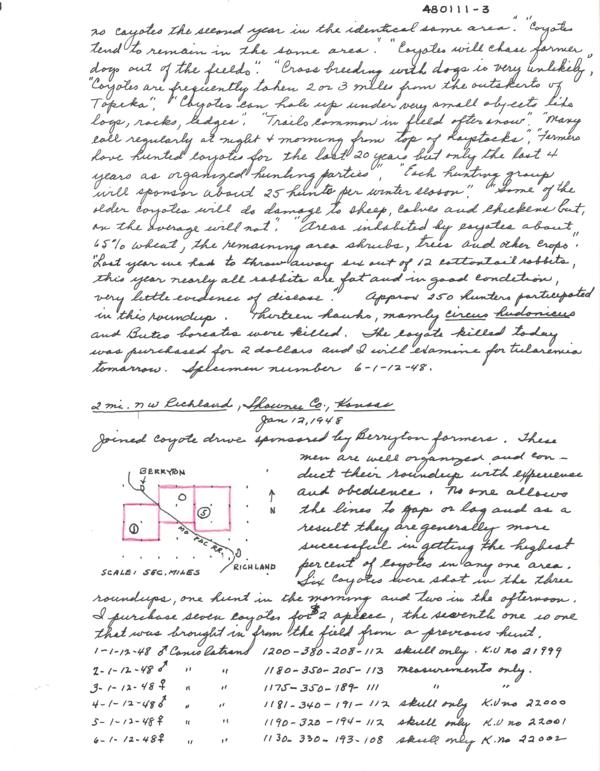 480111-3
no coyotes the second year in the identical same area". "Coyotes
tend to remain in the same area." "Coyotes will chase farmer
dogs out of the fields". "Cross breeding with dogs is very unlikely",
"Coyotes are frequently taken 2 or 3 miles from the outskirts of
Topeka". "Coyotes can hole up under very small objects like
logs, rocks, ledges". "Trails common in field after snow". "Many
call regularly at night & morning from top of haystacks", "Farmers
have hunted coyotes for the last 20 years but only the last 4
years as organized hunting parties", "Each hunting group
will sponsor about 25 hunts per winter season". "Some of the
older coyotes will do damage to sheep, calves and chickens but,
on the average will not". "Areas inhabited by coyotes about
65% wheat, the remaining area shrubs, trees and other crops".
"Last year we had to throw away six out of 12 cottontail rabbits,
this year nearly all rabbits are fat and in good condition,
very little evidence of disease." Approx 250 hunters participated
in this roundup. Thirteen hawks, mainly circus hudonicus
and Buteo borealis were killed. The coyote killed today
was purchased for 2 dollars and I will examine for tularemia
tomorrow. Specimen number 6-1-12-48.
2 mi. nw Richland, Shawnee Co., Kansas
Jan 12, 1948
Joined coyote drive sponsored by Berryton farmers. These
men are well organized and con-
duct their roundup with experience
and obedience. No one allows
the lines to gap or lag and as a
result they are generally more
successful in getting the highest
percent of coyotes in any one area.
Six coyotes were shot in the three
BERRYTON
1
5
N
MO PAC RR.
RICHLAND
SCALE: SEC. MILES
roundups, one hunt in the morning and two in the afternoon.
I purchase seven coyotes for $2 apiece, the seventh one is one
that was brought in from the field from a previous hunt.
1-1-12-48 ♂ Canis latrans 1200-380-208-112 skull only. K.U no 21999
2-1-12-48 ♂ " " 1180-350-205-113 measurements only.
3-1-12-48 ♀ " " 1175-350-189-111 " "
4-1-12-48 ♂ " " 1181-340-191-112 skull only. K.U no 22000
5-1-12-48 ♀ " " 1190-320-194-112 skull only K.U no 22001
6-1-12-48 ♀ " " 1130-330-193-108 skull only K. no 22002